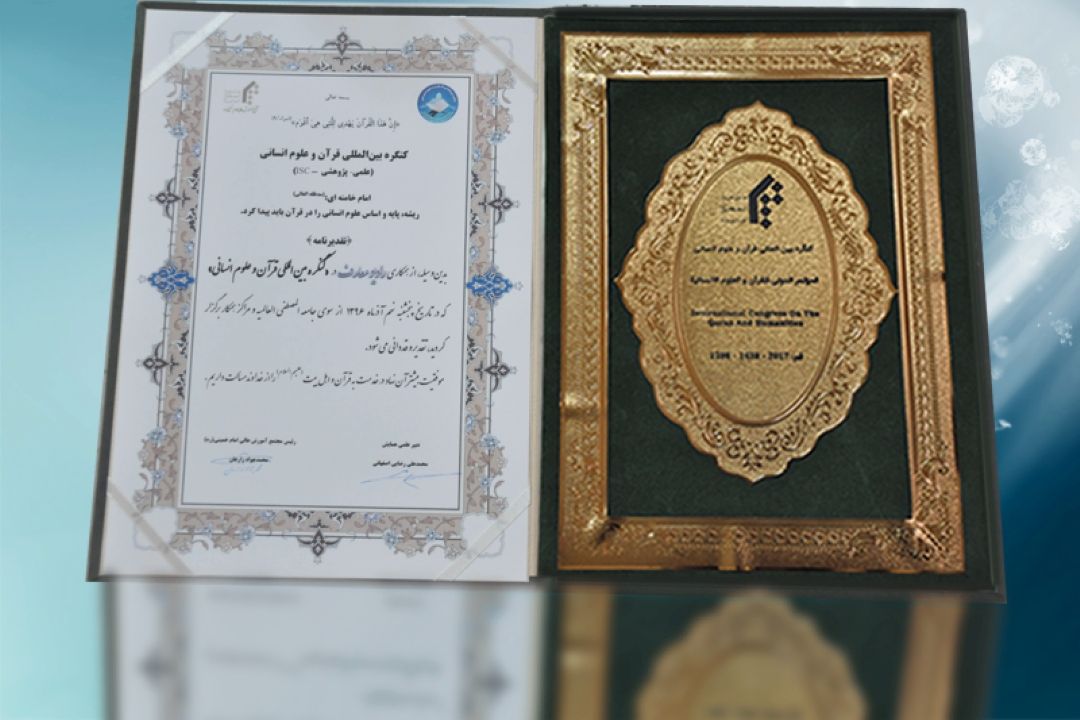 بسمه تعالی
«إِنَّ هَذَا الْقُرْآنَ يَهْدِي لِلَّتِي هِيَ أَقْوَمُ»
کنگره بین‌المللی قرآن و علوم انسانی
(علمی- پژوهشی – ISC)
امام خامنه ای:
ریشه، پایه و اساس علوم انسانی را در قرآن باید پیدا کرد.
«تقدیرنامه»
بدین وسیله، از همکاری رادیو معارف در «کنگره بین المللی قرآن و علوم انسانی»
که در تاریخ پنجشنبه نهم آذرماه ۱۳۹۶ از سوی جامعه المصطفی العالمیه و مراکز همکار برگزار
گردید، تقدیر و قدردانی می شود.
موفقیت بیشتر آن نهاد در خدمت به قرآن و اهل بیت (علیهم السلام) را از خداوند مسالت داریم.
دبیر علمی همایش
محمدعلی رضایی اصفهانی
رئیس مجتمع آموزش عالی امام خمینی(ره)
محمدجواد زارعان
کنگره بین المللی قرآن و علوم انسانی
المؤتمر الدولي للقرآن و العلوم الانسانية
International Congress On The
Quran And Humanities
قم: 2017 - 1438 - 1396